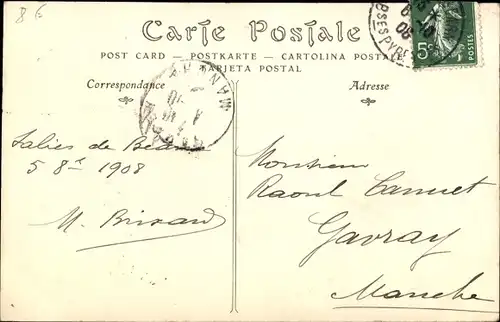 8 €
Carte Postale
POST CARD — POSTKARTE — CARTOLINA POSTALE
TARJETA POSTAL
Correspondance
Adresse
5c
MANCHE
Salies de Béarn
5 8re 1908
M. Brisard
Monsieur
Raoul Canuet
Gavray
Manche